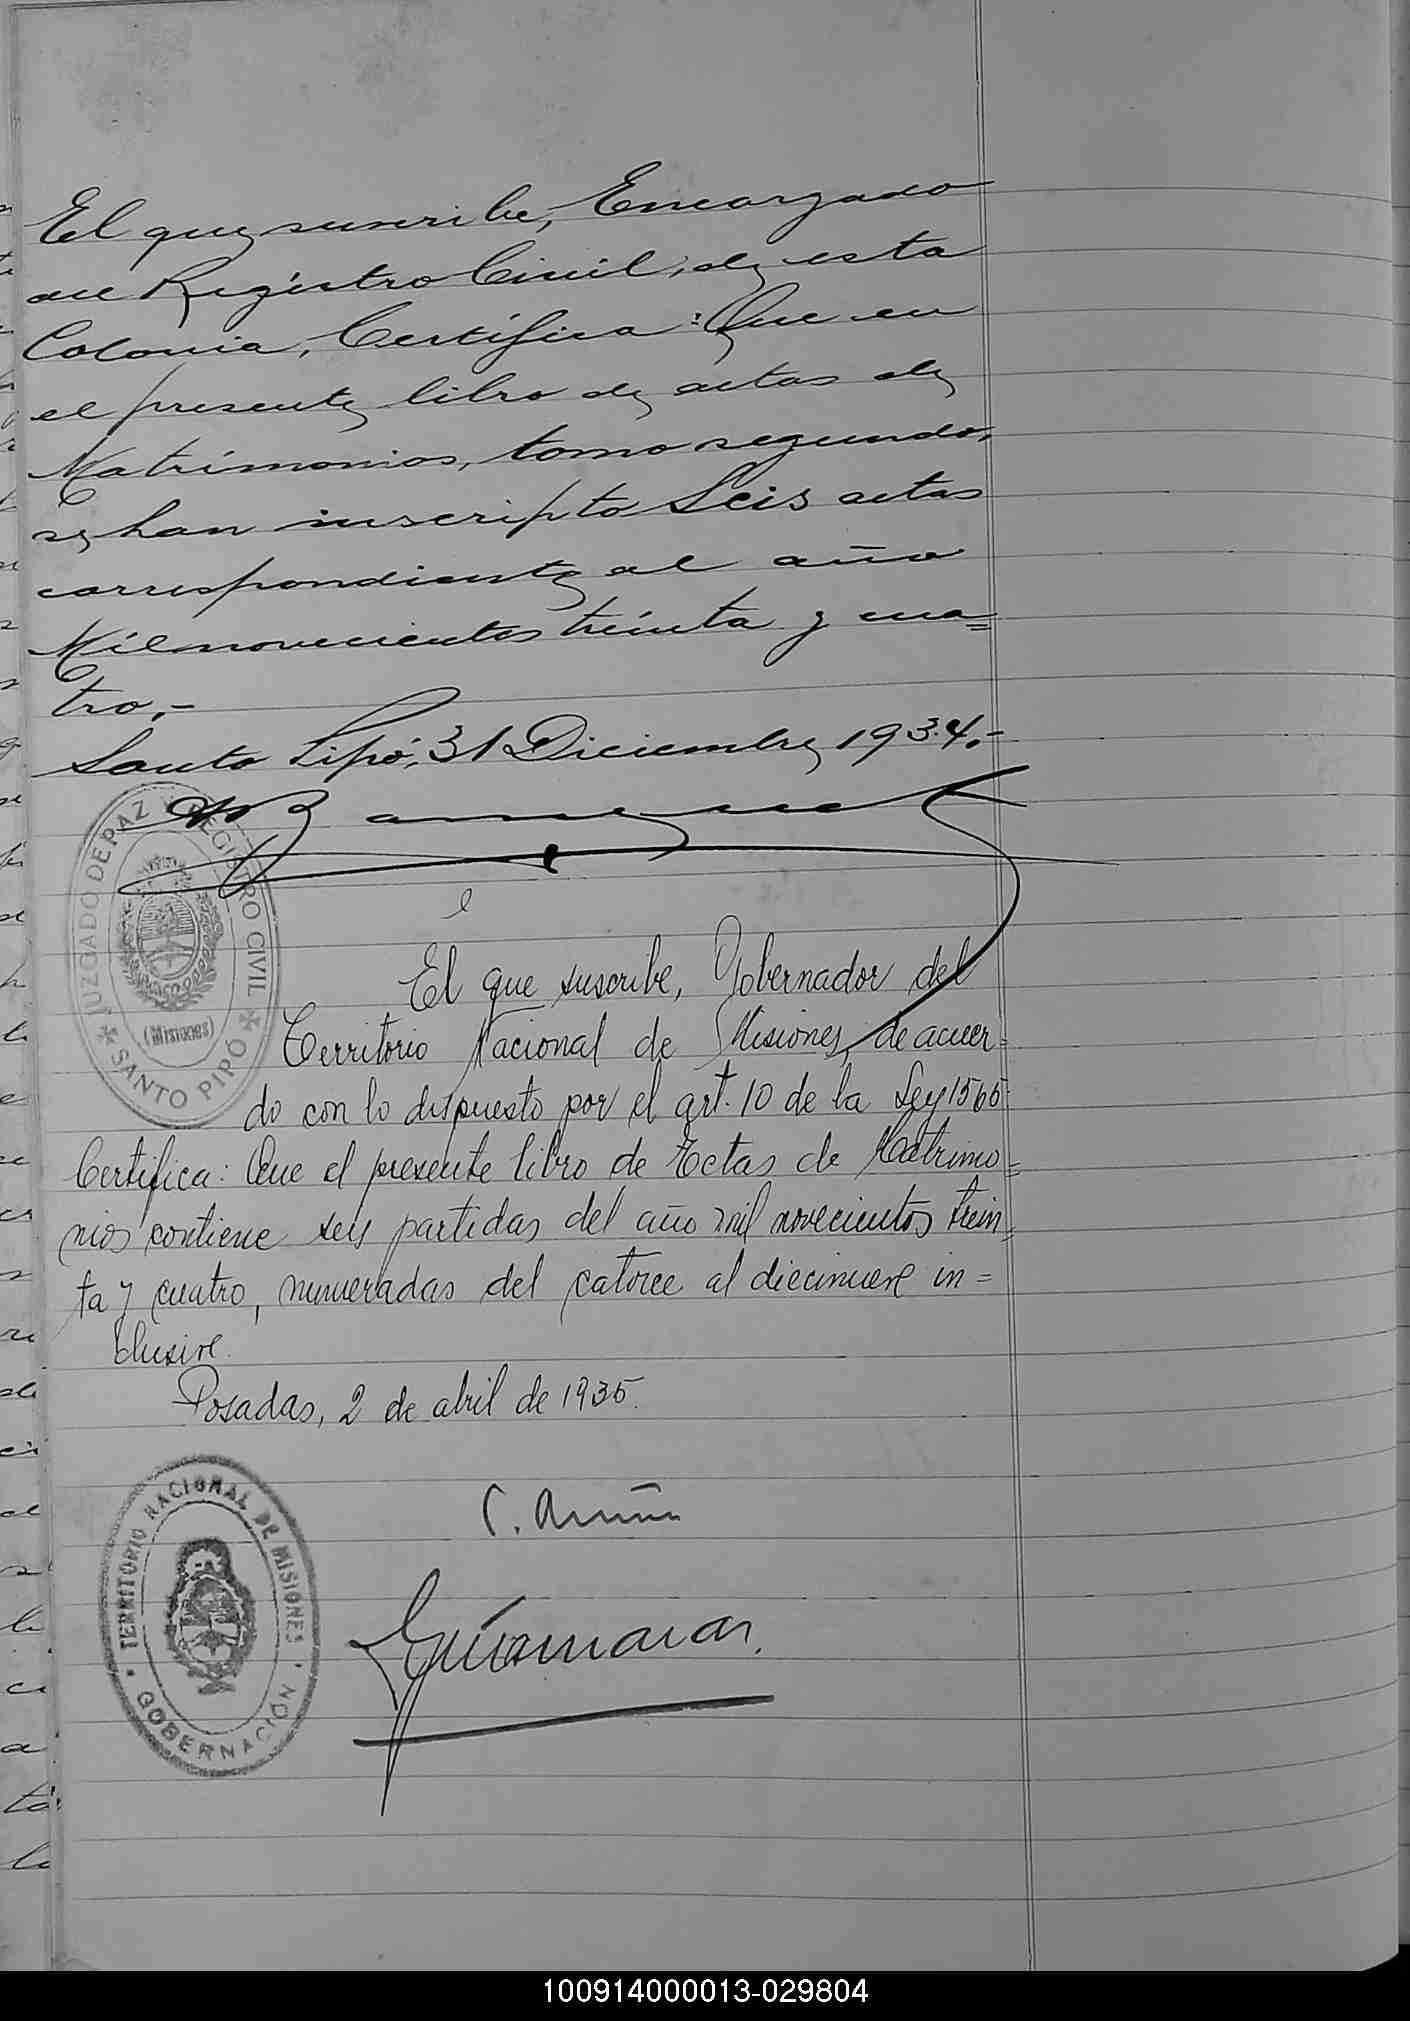 El que suscribe, Encargado
del Registro Civil, de esta
Colonia, Certifica: Que en
el presente libro de actas de
Matrimonios, tomo segundo,
se han inscripto Seis actas
correspondiente al año
Mil novecientos treinta y cua=
tro.-
Santo Pipó, 31 Diciembre 1934.-
JUZGADO DE PAZ Y REGISTRO CIVIL
(Misiones)
SANTO PIPÓ
El que suscribe, Gobernador del
Territorio Nacional de Misiones, de acuer=
do con lo dispuesto por el art. 10 de la Ley 1565
Certifica: Que el presente libro de Actas de Matrimo=
nios contiene seis partidas del año mil novecientos trein=
ta y cuatro, numeradas del catorce al diecinueve in=
clusive.
Posadas, 2 de abril de 1935.
TERRITORIO NACIONAL DE MISIONES
GOBERNACIÓN
100914000013-029804